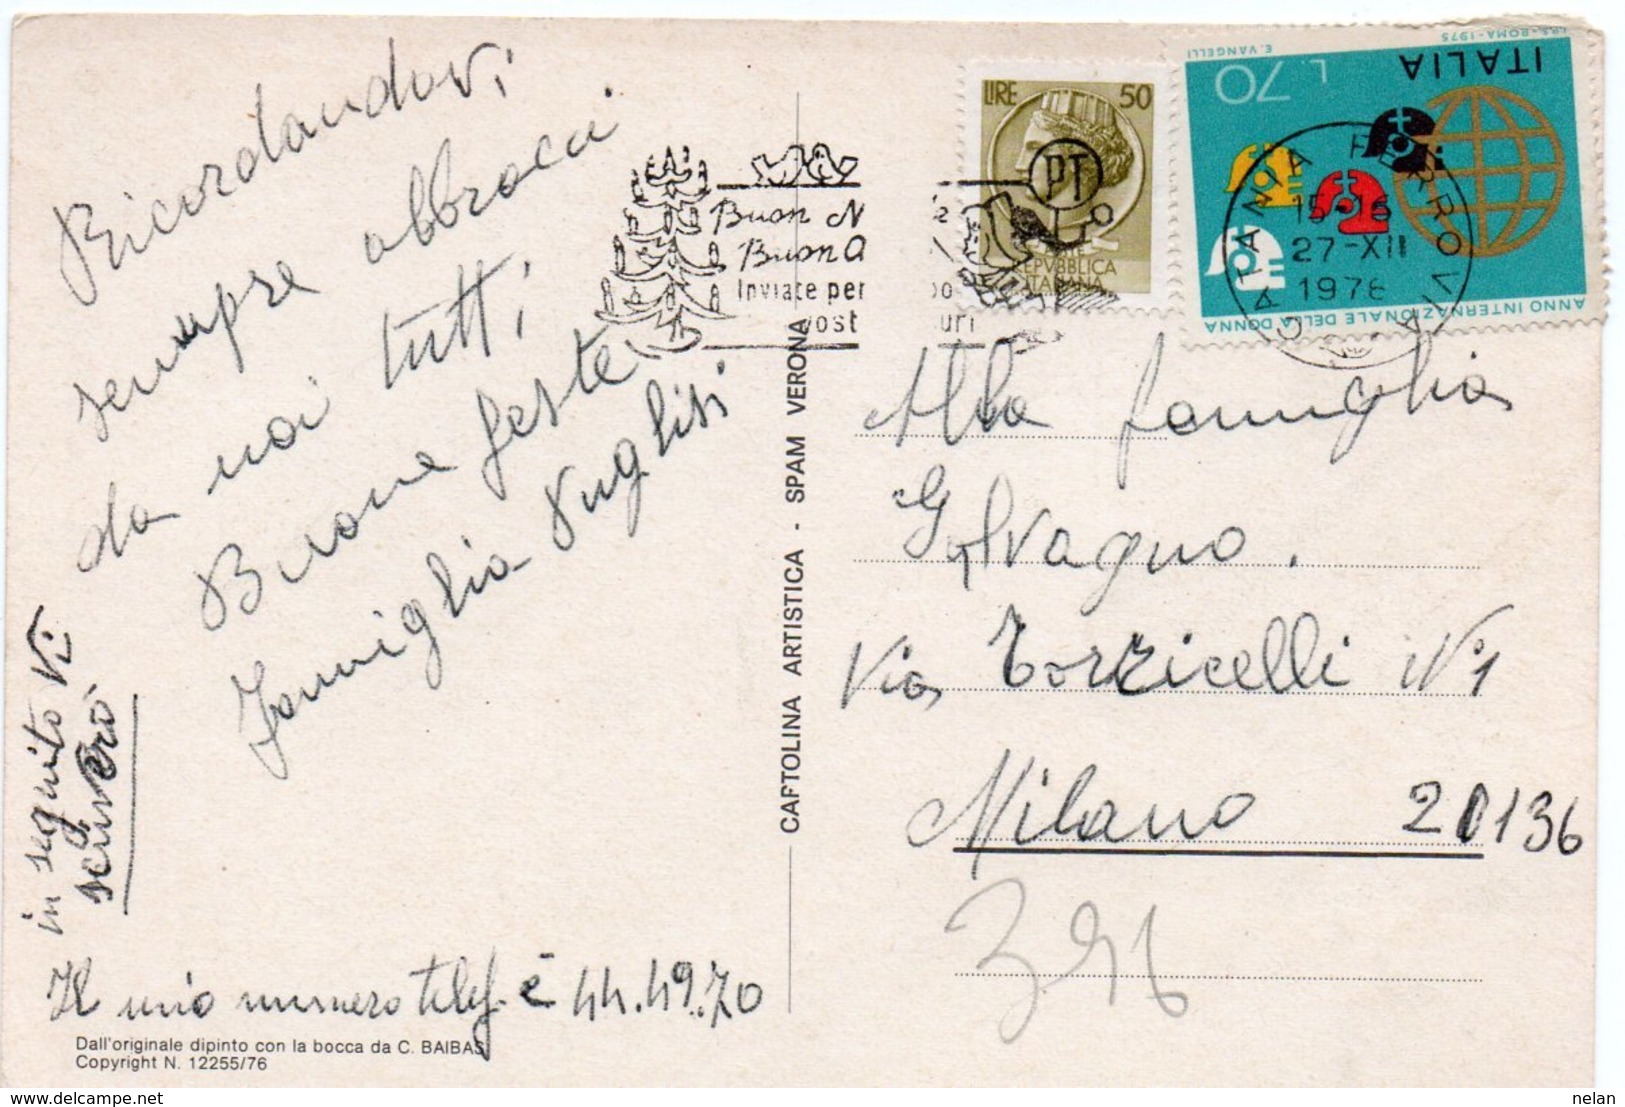 Ricordandovi
sempre abbracci
da noi tutti,
Buone feste
Famiglia Puglisi
in seguito Vi
scriverò
Il mio numero telef. è 44.49.70
Dall'originale dipinto con la bocca da C. BAIBAS
Copyright N. 12255/76
CAFTOLINA ARTISTICA - SPAM VERONA
Buon N
Buon A
Inviate per
vost uri
LIRE 50
PT
REPVBBLICA
ITALIANA
I.P.S.-ROMA-1975 E. VANGELLI
ITALIA L.70
ANNO INTERNAZIONALE DELLA DONNA
CATANIA FERROVIA
15-16
27-XII
1976
Alla famiglia
Galvagno.
Via Torricelli N°1
Milano 20136
delcampe.net
nelan